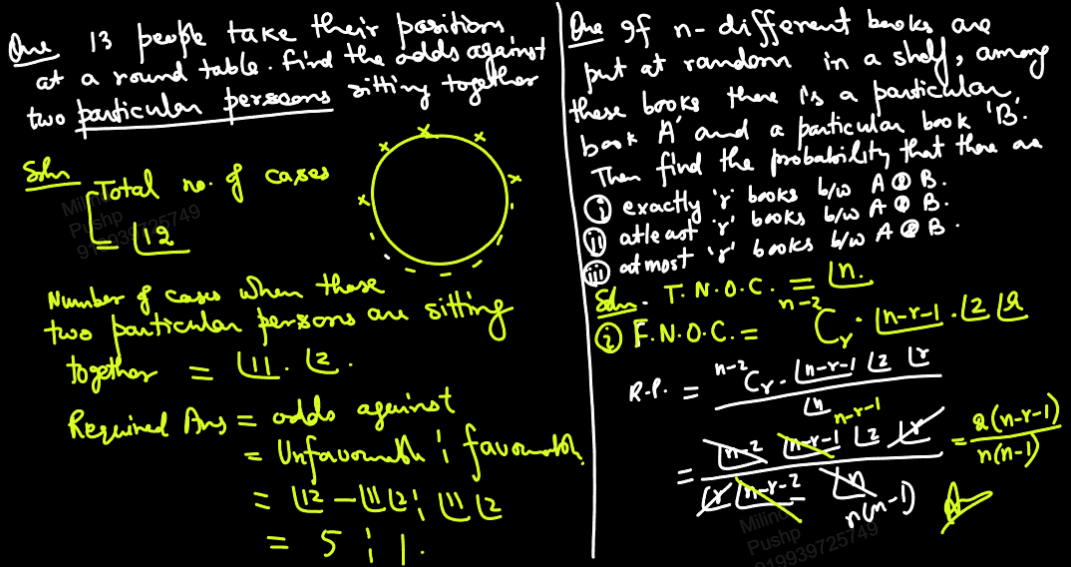 Que 13 people take their positions
at a round table. find the odds against
two particular persons sitting together
Soln
Total no. of cases
= ⌊12
Number of cases when these
two particular persons are sitting
together = ⌊11 . ⌊2 .
Required Ans = odds against
= Unfavourable : favourable
= ⌊12 - ⌊11 ⌊2 : ⌊11 ⌊2
= 5 : 1.
Que If n- different books are
put at random in a shelf, among
these books there is a particular
book 'A' and a particular book 'B'.
Then find the probability that there are
(i) exactly 'r' books b/w A & B.
(ii) atleast 'r' books b/w A & B.
(iii) at most 'r' books b/w A & B.
Soln. T.N.O.C. = ⌊n.
(i) F.N.O.C. = n-2Cr . ⌊n-r-1 . ⌊2 ⌊r
R.P. = n-2Cr . ⌊n-r-1 ⌊2 ⌊r
⌊n
n-r-1
= ⌊n-2 ⌊n-r-1 ⌊2 ⌊r
⌊r ⌊n-r-2 ⌊n
n(n-1)
= 2(n-r-1)
n(n-1)
Milind
Pushp
919939725749
Milind
Pushp
919939725749